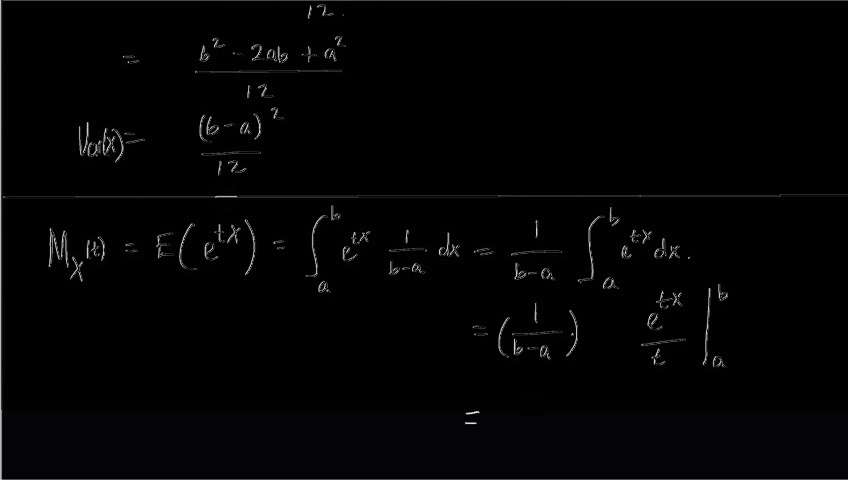 12.
= b² - 2ab + a² / 12
Var(x) = (b-a)² / 12
M_X(t) = E(e^{tX}) = ∫_a^b e^{tx} 1/(b-a) dx = 1/(b-a) ∫_a^b e^{tx} dx.
= (1/(b-a)) e^{tx}/t |_a^b
=